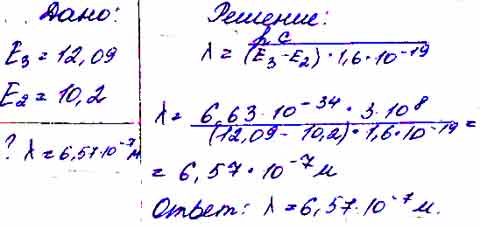 Дано:
E₃ = 12,09
E₂ = 10,2
? λ = 6,57·10⁻⁷ м
Решение:
λ = h c / (E₃ − E₂) · 1,6 · 10⁻¹⁹
λ = 6,63 · 10⁻³⁴ · 3 · 10⁸ / (12,09 − 10,2) · 1,6 · 10⁻¹⁹ =
= 6,57 · 10⁻⁷ м
Ответ: λ = 6,57·10⁻⁷ м.